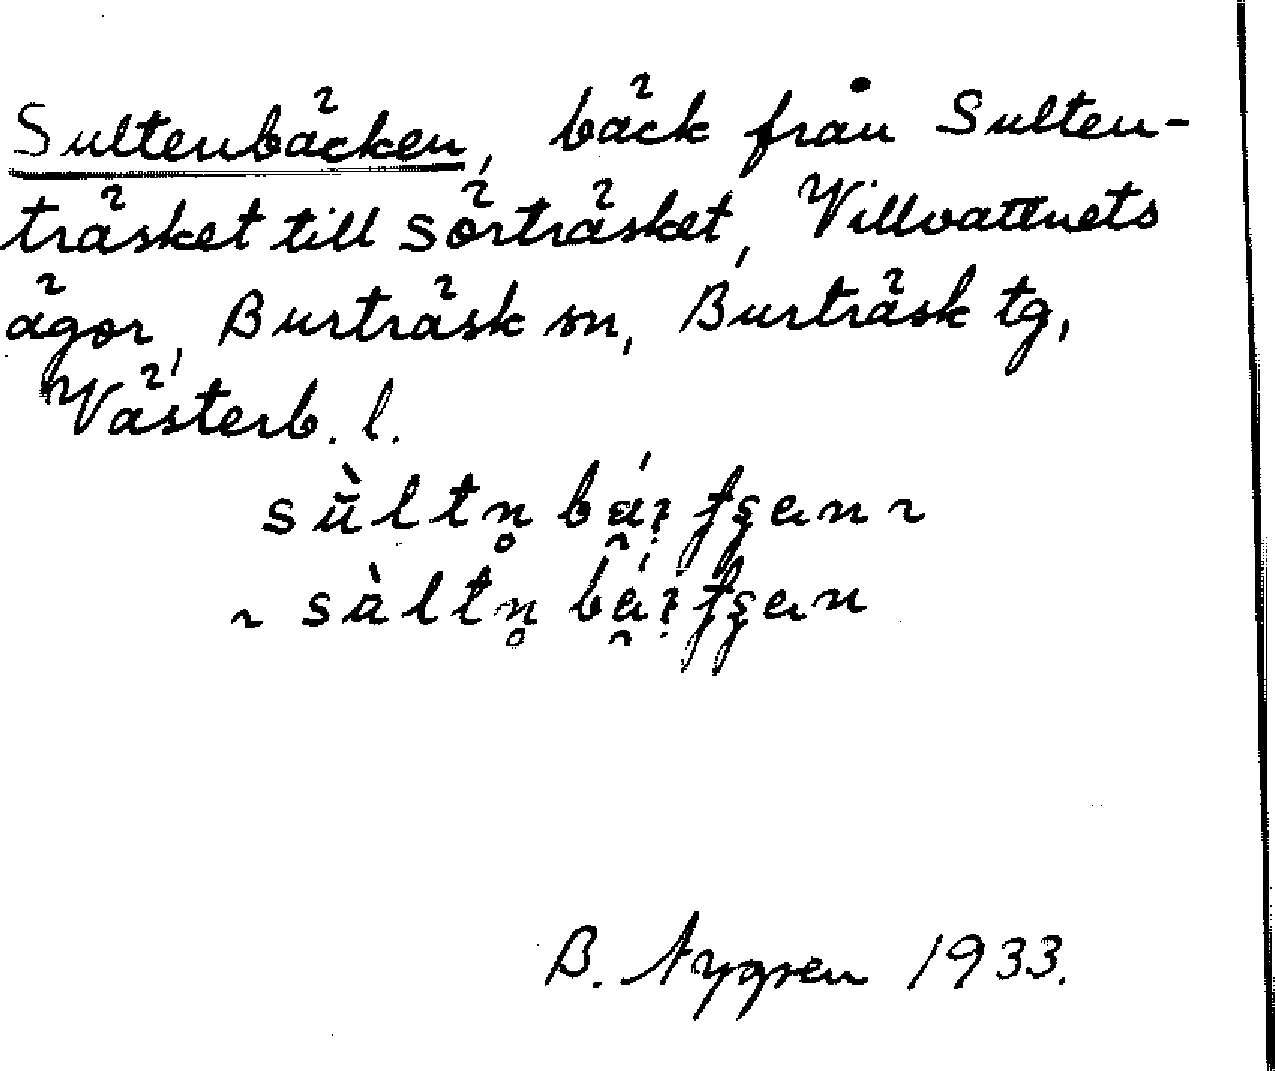 Sultenbäcken, bäck från Sulten-
träsket till Sörträsket, Villvattnets
ägor, Burträsk sn, Burträsk tg,
Västerb. l.
B. Nygren 1933.